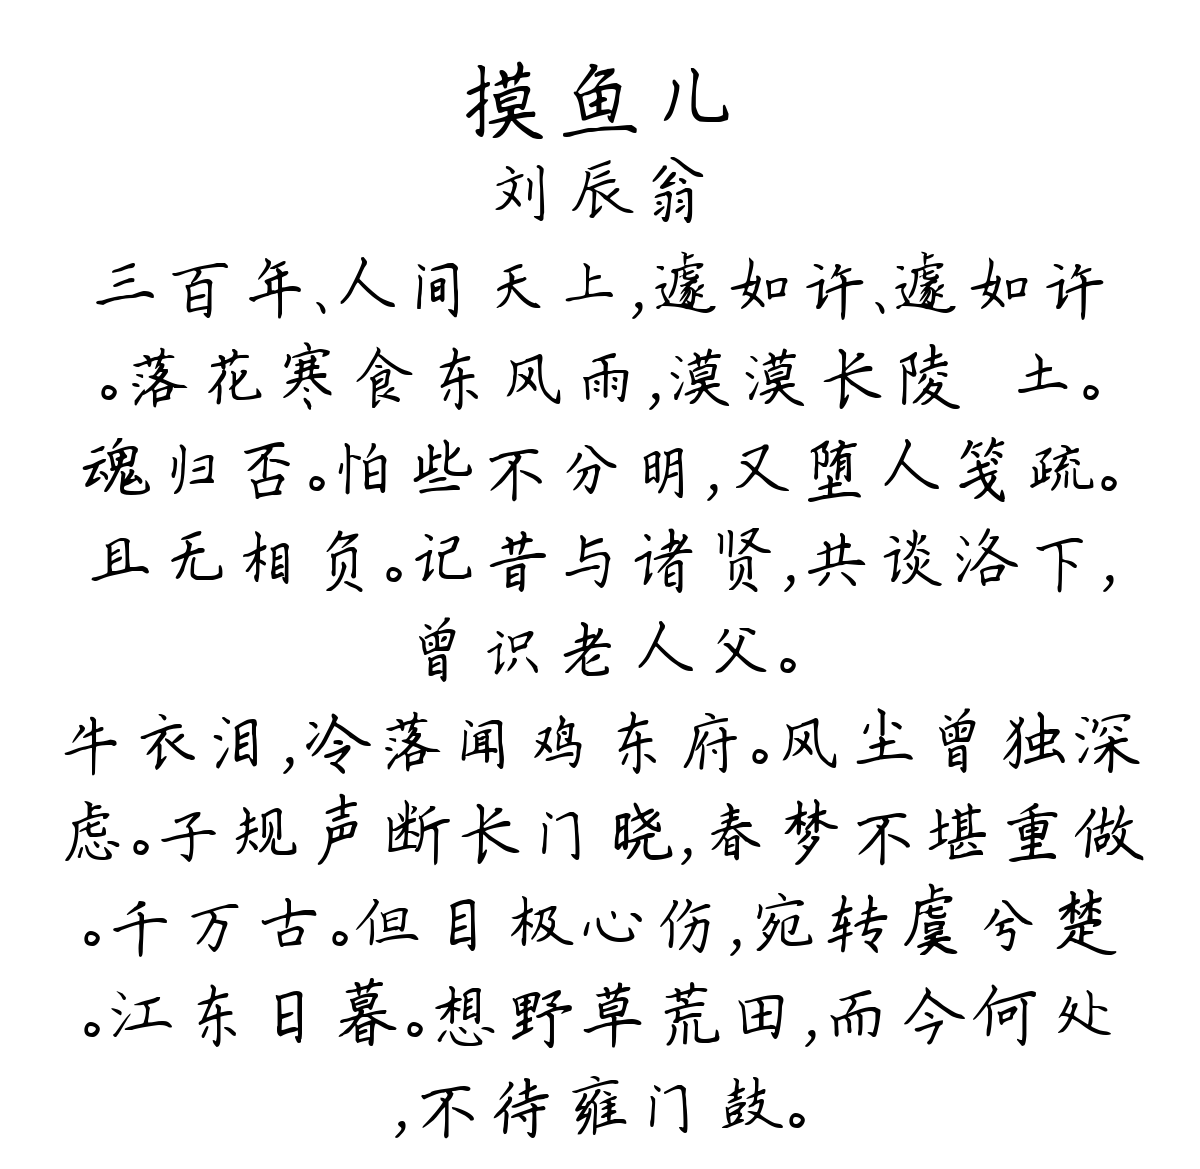 摸鱼儿
刘辰翁
三百年、人间天上,遽如许、遽如许
。落花寒食东风雨,漠漠长陵 土。
魂归否。怕些不分明,又堕人笺疏。
且无相负。记昔与诸贤,共谈洛下,
曾识老人父。
牛衣泪,冷落闻鸡东府。风尘曾独深
虑。子规声断长门晓,春梦不堪重做
。千万古。但目极心伤,宛转虞兮楚
。江东日暮。想野草荒田,而今何处
,不待雍门鼓。